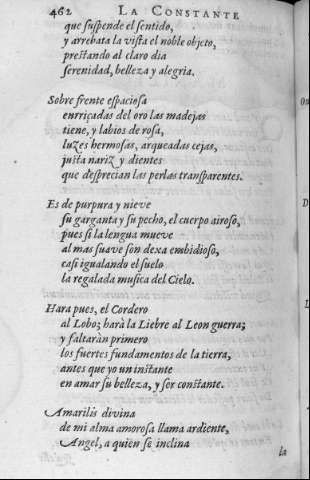 462 LA CONSTANTE
que suspende el sentido,
y arrebata la vista el noble objeto,
prestando al claro dia
serenidad, belleza y alegria.
Sobre frente espaciosa
enrriçadas del oro las madejas
tiene, y labios de rosa,
luzes hermosas, arqueadas cejas,
justa nariz y dientes
que desprecian las perlas transparentes.
Es de purpura y nieve
su garganta y su pecho, el cuerpo airoso,
pues si la lengua mueve
al mas suave son dexa embidioso,
casi igualando el suelo
la regalada musica del Cielo.
Hara pues, el Cordero
al Lobo; harà la Liebre al Leon guerra;
y faltaràn primero
los fuertes fundamentos de la tierra,
antes que yo un instante
en amar su belleza, y ser constante.
Amarilis divina
de mi alma amorosa llama ardiente,
Angel, a quien se inclina
la